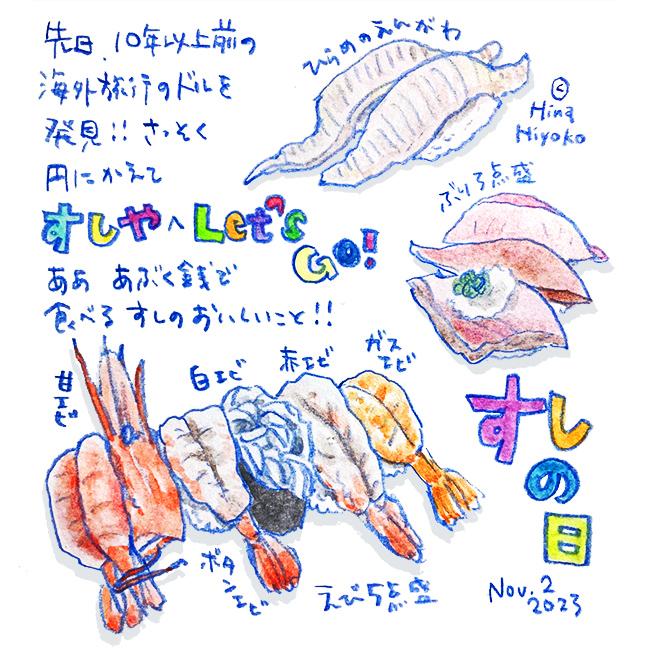 先日、10年以上前の
海外旅行のドルを
発見!! さっそく
円にかえて
すしやへLet's
GO!
ああ あぶく銭で
食べる すしの おいしいこと!!
ひらめのえんがわ
©
Hina
Hiyoko
ぶり3点盛
甘エビ
白エビ
赤エビ
ガス
エビ
ボタンエビ
えび5点盛
すし
の
日
Nov. 2
2023